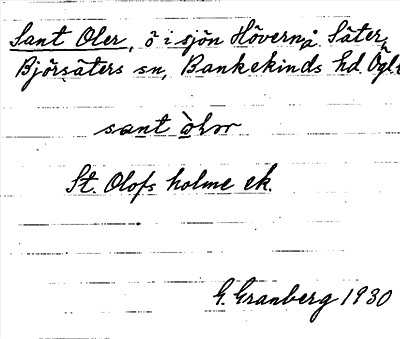 Sant Oler, ö i sjön Hövern å Säter,
Björsäters sn, Bankekinds hd. Ögl.
sant òlər
St. Olofs holme ek.
G. Granberg 1930